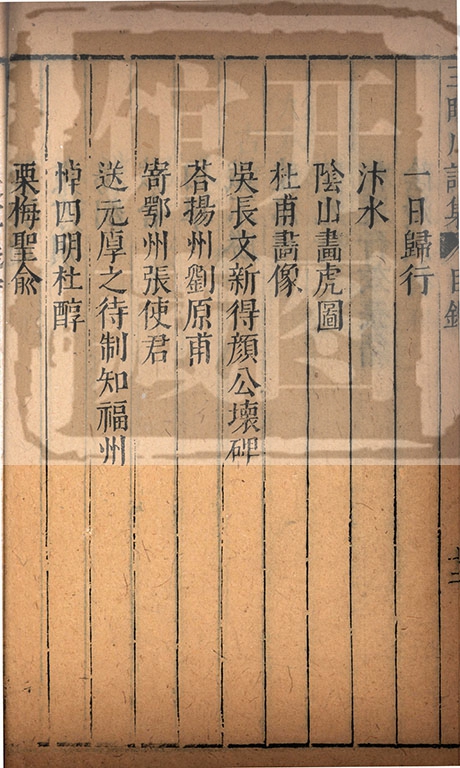 詩集 目錄
一日歸行
汴水
陰山畫虎圖
杜甫畵像
吳長文新得顔公壞碑
荅揚州劉原甫
寄鄂州張使君
送元厚之待制知福州
悼四明杜醇
哭梅聖俞